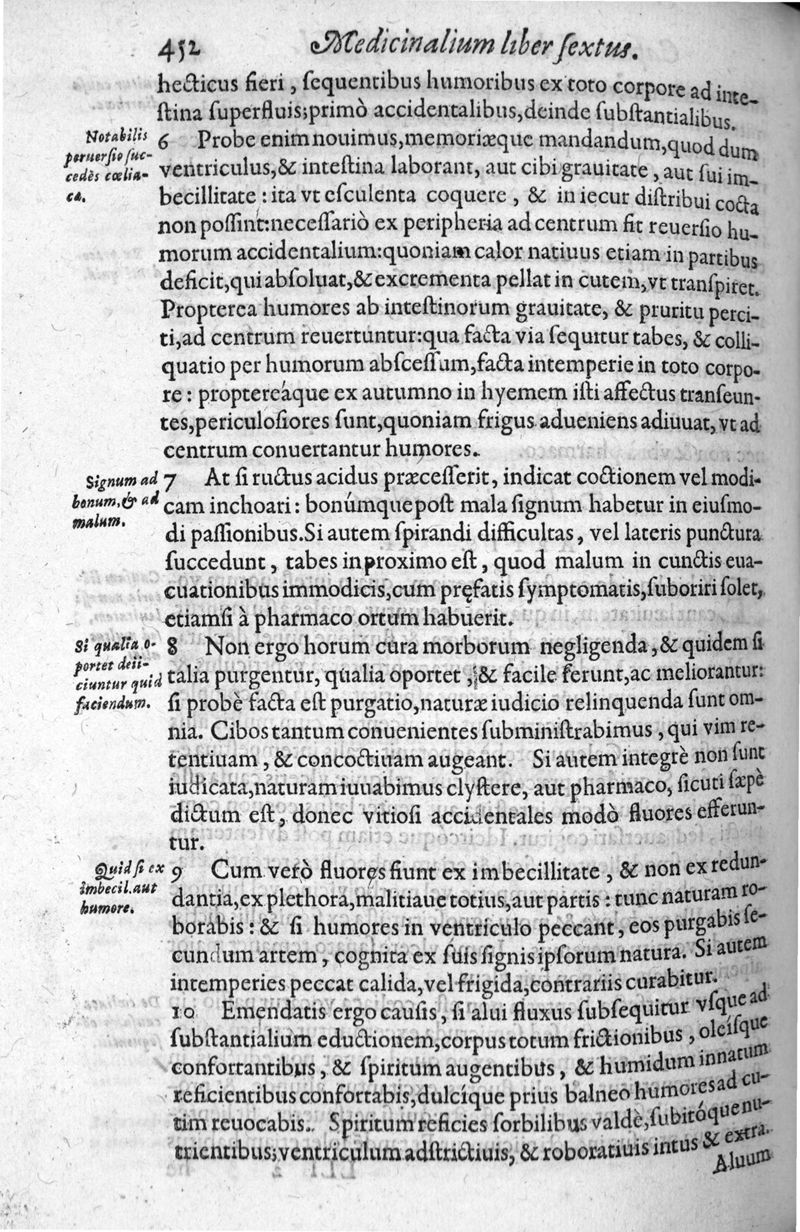 452 Medicinalium liber ſextus.
hecticus fieri, ſequentibus humoribus ex toto corpore ad inte-
ſtina ſuperfluis; primò accidentalibus, deinde ſubſtantialibus.
Notabilis
peruerſio ſuc-
cedēs cœlia-
ca.
6 Probe enim nouimus, memoriæque mandandum, quod dum
ventriculus, & inteſtina laborant, aut cibi grauitate, aut ſui im-
becillitate: ita vt eſculenta coquere, & in iecur diſtribui cocta
non poſſint: neceſſariò ex peripheria ad centrum fit reuerſio hu-
morum accidentalium: quoniam calor natiuus etiam in partibus
deficit, qui abſoluat, & excrementa pellat in cutem, vt tranſpiret.
Propterea humores ab inteſtinorum grauitate, & pruritu perci-
ti, ad centrum reuertuntur: qua facta via ſequitur tabes, & colli-
quatio per humorum abſceſſum, facta intemperie in toto corpo-
re: proptereáque ex autumno in hyemem iſti affectus tranſeun-
tes, periculoſiores ſunt, quoniam frigus adueniens adiuuat, vt ad
centrum conuertantur humores.
Signum ad
bonum, & ad
malum.
7 At ſi ructus acidus præceſſerit, indicat coctionem vel modi-
cam inchoari: bonúmque poſt mala ſignum habetur in eiuſmo-
di paſſionibus. Si autem ſpirandi difficultas, vel lateris punctura
ſuccedunt, tabes in proximo eſt, quod malum in cunctis eua-
cuationibus immodicis, cum pręfatis ſymptomatis, ſuboriri ſolet,
etiamſi à pharmaco ortum habuerit.
Si qualia o-
portet deii-
ciuntur quid
faciendum.
8 Non ergo horum cura morborum negligenda, & quidem ſi
talia purgentur, qualia oportet, & facile ferunt, ac meliorantur:
ſi probè facta eſt purgatio, naturæ iudicio relinquenda ſunt om-
nia. Cibos tantum conuenientes ſubminiſtrabimus, qui vim re-
tentiuam, & concoctiuam augeant. Si autem integrè non ſunt
iudicata, naturam iuuabimus clyſtere, aut pharmaco, ſicuti ſæpè
dictum eſt, donec vitioſi accidentales modò fluores efferun-
tur.
Quid ſi ex
imbecil. aut
humore.
9 Cum verò fluores fiunt ex imbecillitate, & non ex redun-
dantia, ex plethora, malitiaue totius, aut partis: tunc naturam ro-
borabis: & ſi humores in ventriculo peccant, eos purgabis ſe-
cundum artem, cognita ex ſuis ſignis ipſorum natura. Si autem
intemperies peccat calida, vel frigida, contrariis curabitur.
10 Emendatis ergo cauſis, ſi alui fluxus ſubſequitur vſque ad
ſubſtantialium eductionem, corpus totum frictionibus, oleiſque
confortantibus, & ſpiritum augentibus, & humidum innatum
reficientibus confortabis, dulcíque prius balneo humores ad cu-
tim reuocabis. Spiritum reficies ſorbilibus valdè, ſubitóque nu-
trientibus; ventriculum adſtrictiuis, & roboratiuis intus & extra.
Aluum